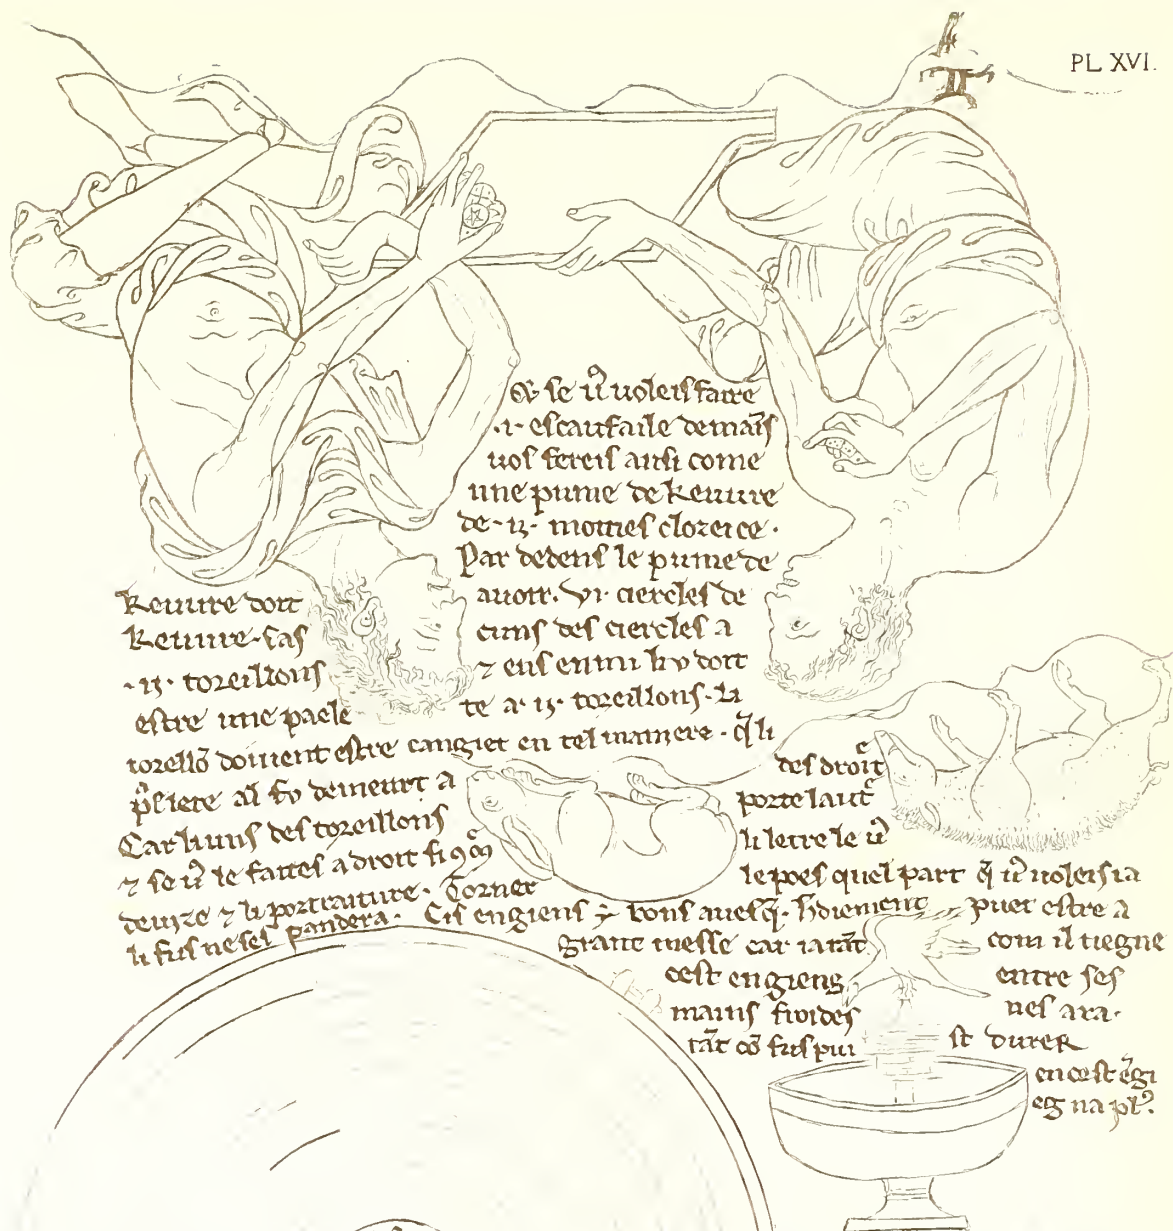 PL XVI.
Se vͦ uoleis faire
.i. escaufaile de maĩs
uos fereis ausi come
une pume de keuure
de .ii. moities clozeice.
Par dedens le pume de
keuure doit auoir .vi. ciercles de
keuure. cas cuns des ciercles a
.ii. toreillons ⁊ ens enmi liv doit
estre une paele te a .ii. toreillons. Li
torellõ doiuent estre cangiet en tel maniere. q̃ li
pͣelete al fv demeurt a des droite
Car li uns des toreillons porte lautͤ
⁊ se vͦ le faites a droit si 9ͫ li letre le vͦ
deuize ⁊ li portraiture. Torner le poes quel part q̃ vͦ uoleis ia
li fus ne sespandera. Cis engiens ÷ bons auesq̃. hdiement puet estre a
grant messe car ia tãt com il tiegne
cest engieng entre ses
mains froides nes ara.
tãt cõ fus pui st durer
en cest ẽgi
eg na plͦ.